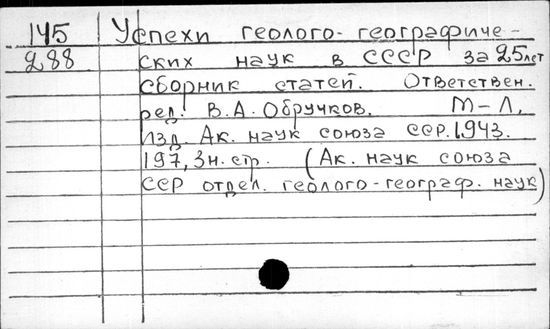 145 Успехи геолого-географиче-
288 ских наук в СССР за 25 лет
сборник статей. Ответствен.
ред. В.А. Обручков. М-Л,
Изд. Ак. наук союза ССР. 1943.
197, 3н. стр. (Ак. наук союза
ССР отдел. геолого-географ. наук)